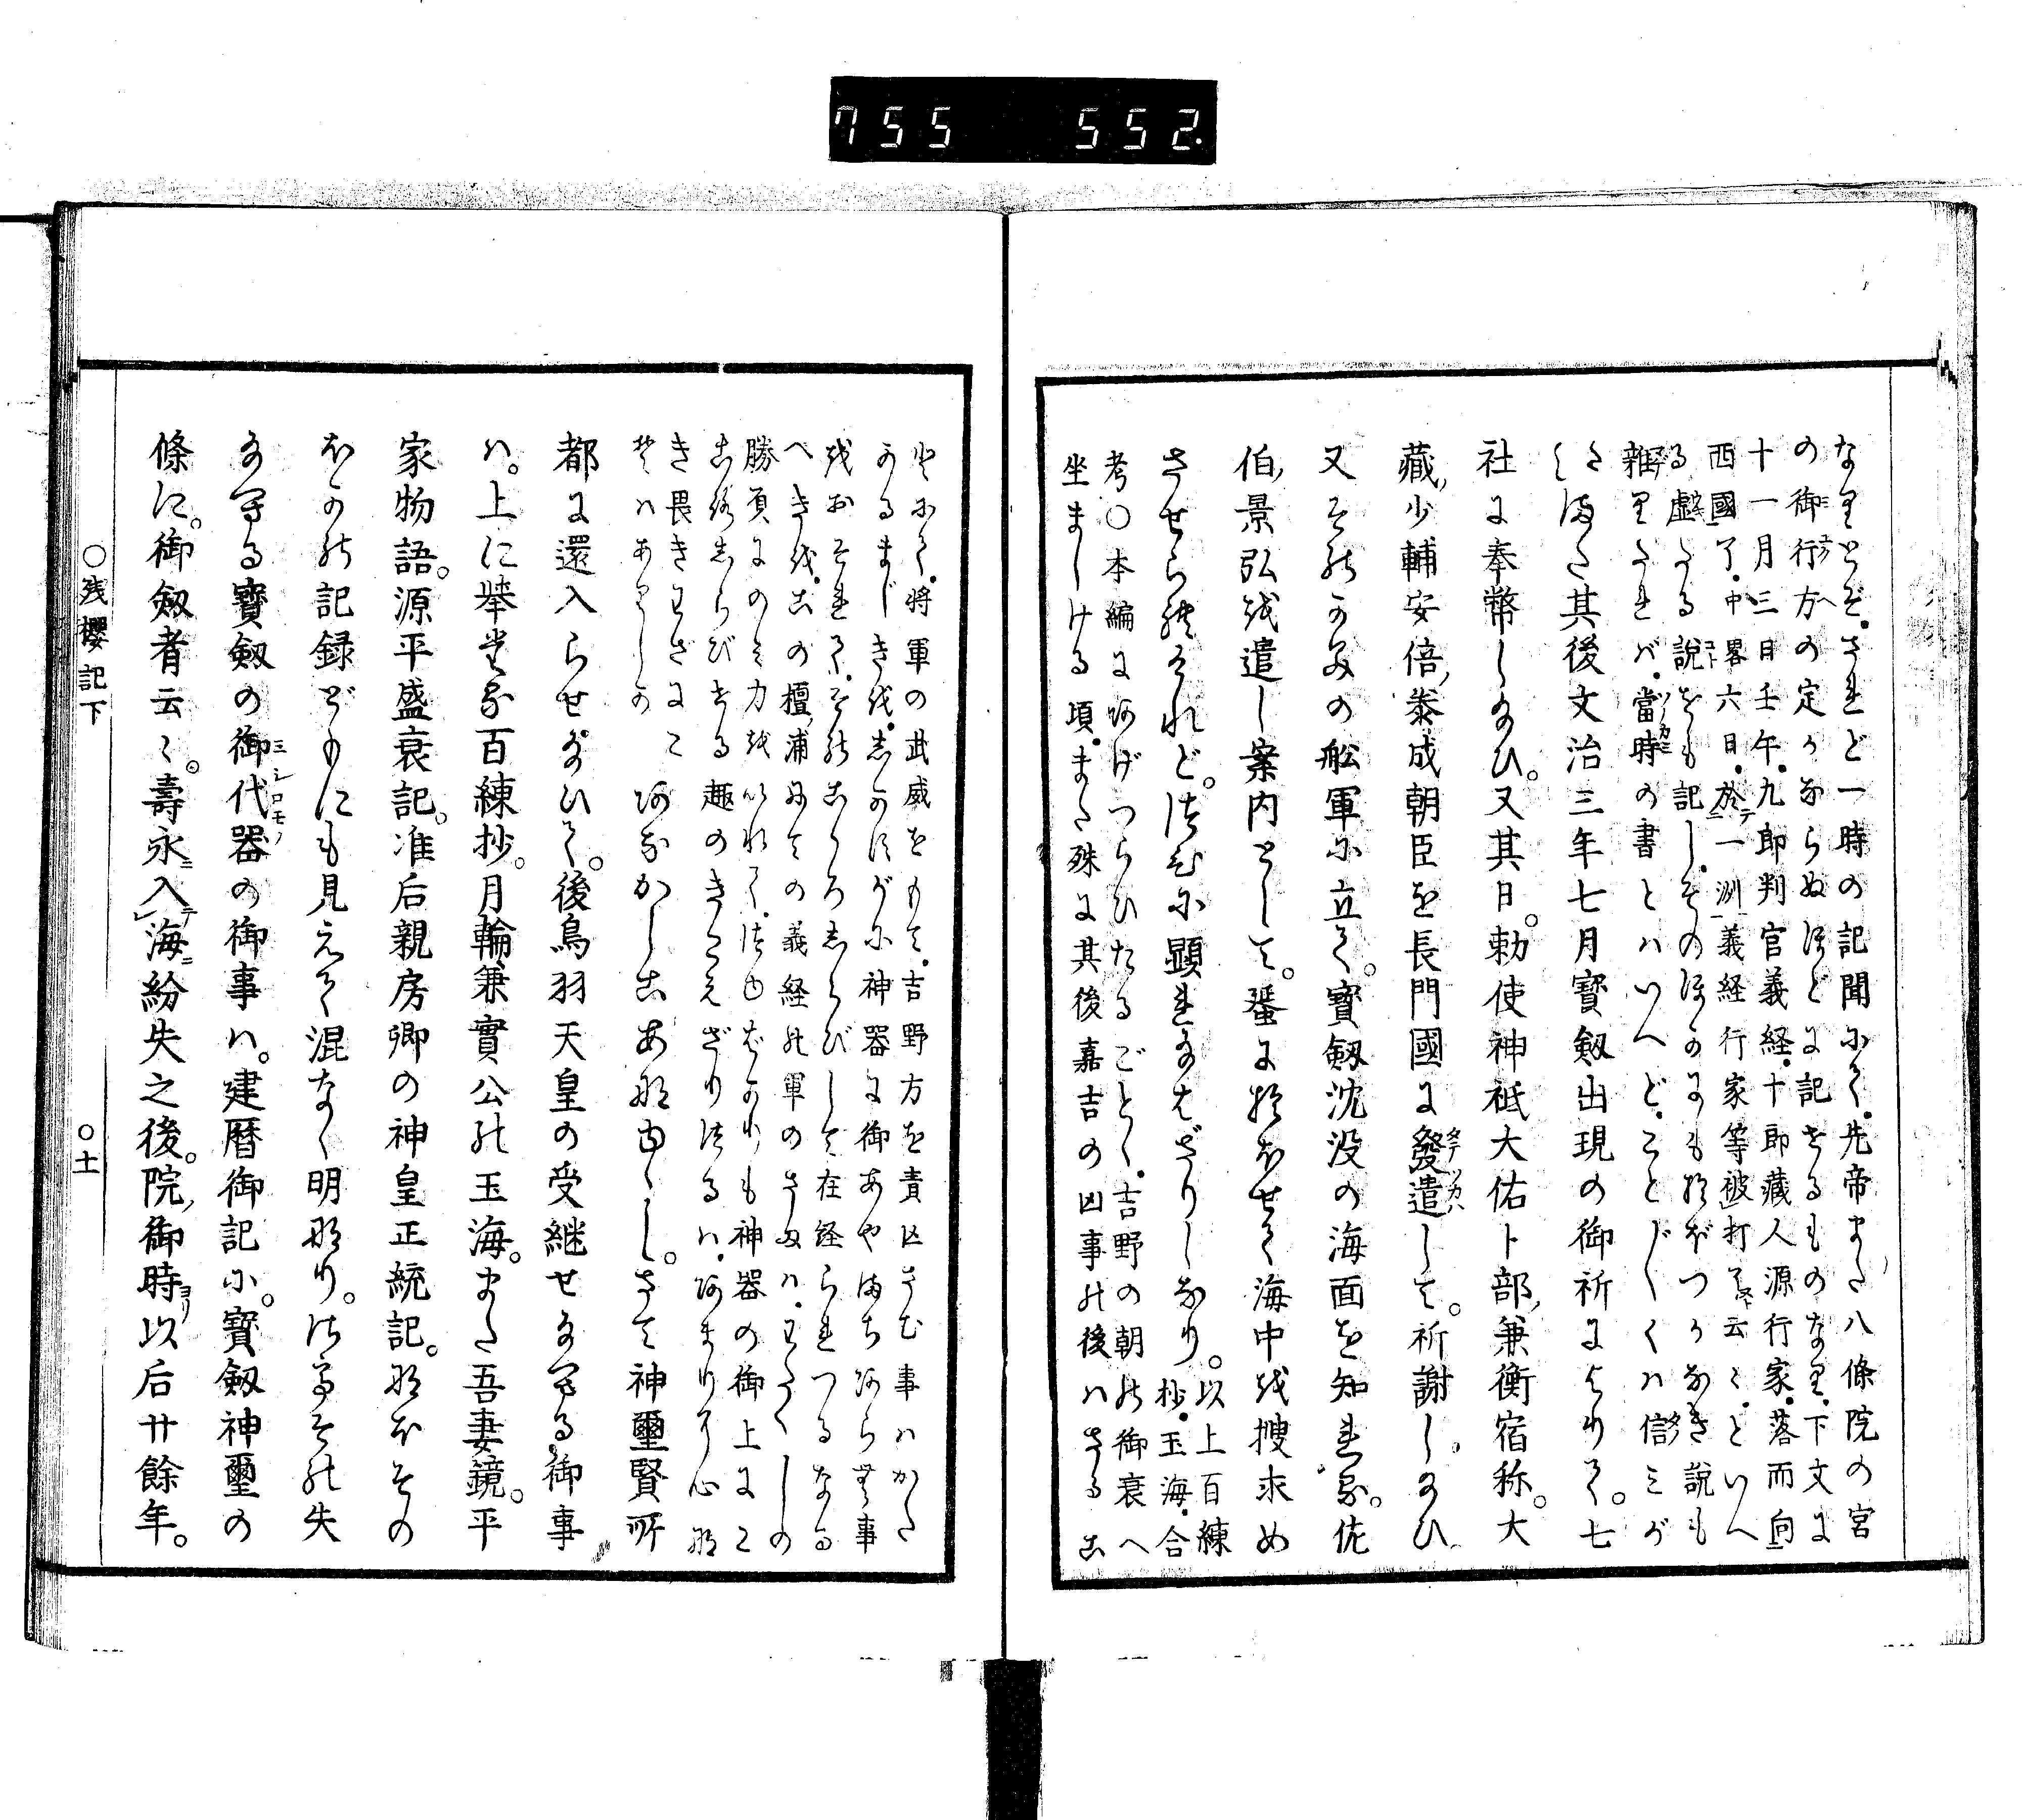 755 552.
なりとぞ。されど一時の記聞にて。先帝また八條院の宮
の御行方の定かならぬほどに記せるものなり。下文に
十一月三日壬午。九郎判官義経。十郎蔵人源行家。落而向
西國了。中畧六日。於一洲義経行家等被打了云〻。といへ
る虚たる説をも記し。そのほかにもおぼつかなき説も
雑りたれバ。當時の書とハいへど。ことごとくハ信ミが
たし
また其後文治三年七月寶劔出現の御祈によりて。七
社に奉幣し給ひ。又其日。勅使神祇大佑卜部兼衡宿祢。大
蔵少輔安倍泰成朝臣を長門國に發遣して。祈謝し給ひ
又そのかみの舩軍に立て。寶劔沈没の海面を知れる。佐
伯景弘を遣し案内として。蜑におほせて海中を捜求め
させられけれど。つひに顕れ給はざりしなり。以上百練
抄。玉海。合
考〇本編にあげつらひたるごとく。吉野の朝の御衰へ
坐ましける頃。また殊に其後嘉吉の凶事の後ハさるこ
とにて。將軍の武威をもて。吉野方を責亡さむ事ハかた
かるまじきを。しかすがに神器に御あやまちあらむ事
をおそれて。そのこころしらびして在経られつるなる
べきを。この檀浦にての義経の軍のさまハ。わたくしの
勝負にのミ力をいれて。つゆばかりも神器の御上にこ
ころしらびせる趣のきこえざりつるハ。あまりに心な
き畏きわざにこ
そハありしか
あなかしこあなゆゝし。さて神璽賢所
都に還入らせ給ひて。後鳥羽天皇の受継せ給へる御事
ハ。上に挙たる百練抄。月輪兼實公の玉海。また吾妻鏡。平
家物語。源平盛衰記。准后親房卿の神皇正統記。なほその
ほかの記録どもにも見えて混なく明なり。此度その失
給へる寶劔の御代器の御事ハ。建暦御記に。寶劔神璽の
條に。御劔者云〻。壽永入海紛失之後。院御時以后廿餘年。
〇残櫻記下
〇十一